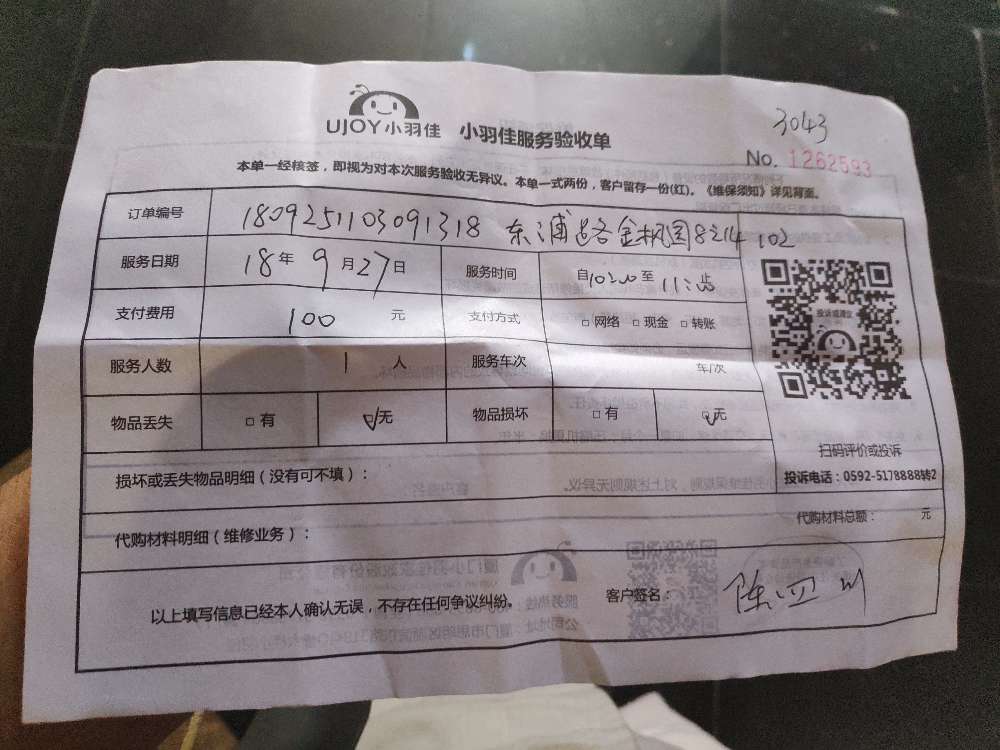 3043
UJOY小羽佳 小羽佳服务验收单
No. 1262593
本单一经核签，即视为对本次服务验收无异议。本单一式两份，客户留存一份(红)。《维保须知》详见背面。
订单编号 1809251103091318 东浦路金桃园8之14 102
服务日期 18年9月27日 服务时间 自10:00至11:00止
支付费用 100 元 支付方式 □网络 □现金 □转账
投诉或建议
服务人数 1人 服务车次 车/次
物品丢失 □有 ☑无 物品损坏 □有 ☑无
扫码评价或投诉
损坏或丢失物品明细（没有可不填）：
投诉电话：0592-5178888转2
代购材料明细（维修业务）：
代购材料总额： 元
以上填写信息已经本人确认无误，不存在任何争议纠纷。 客户签名： 陈四川